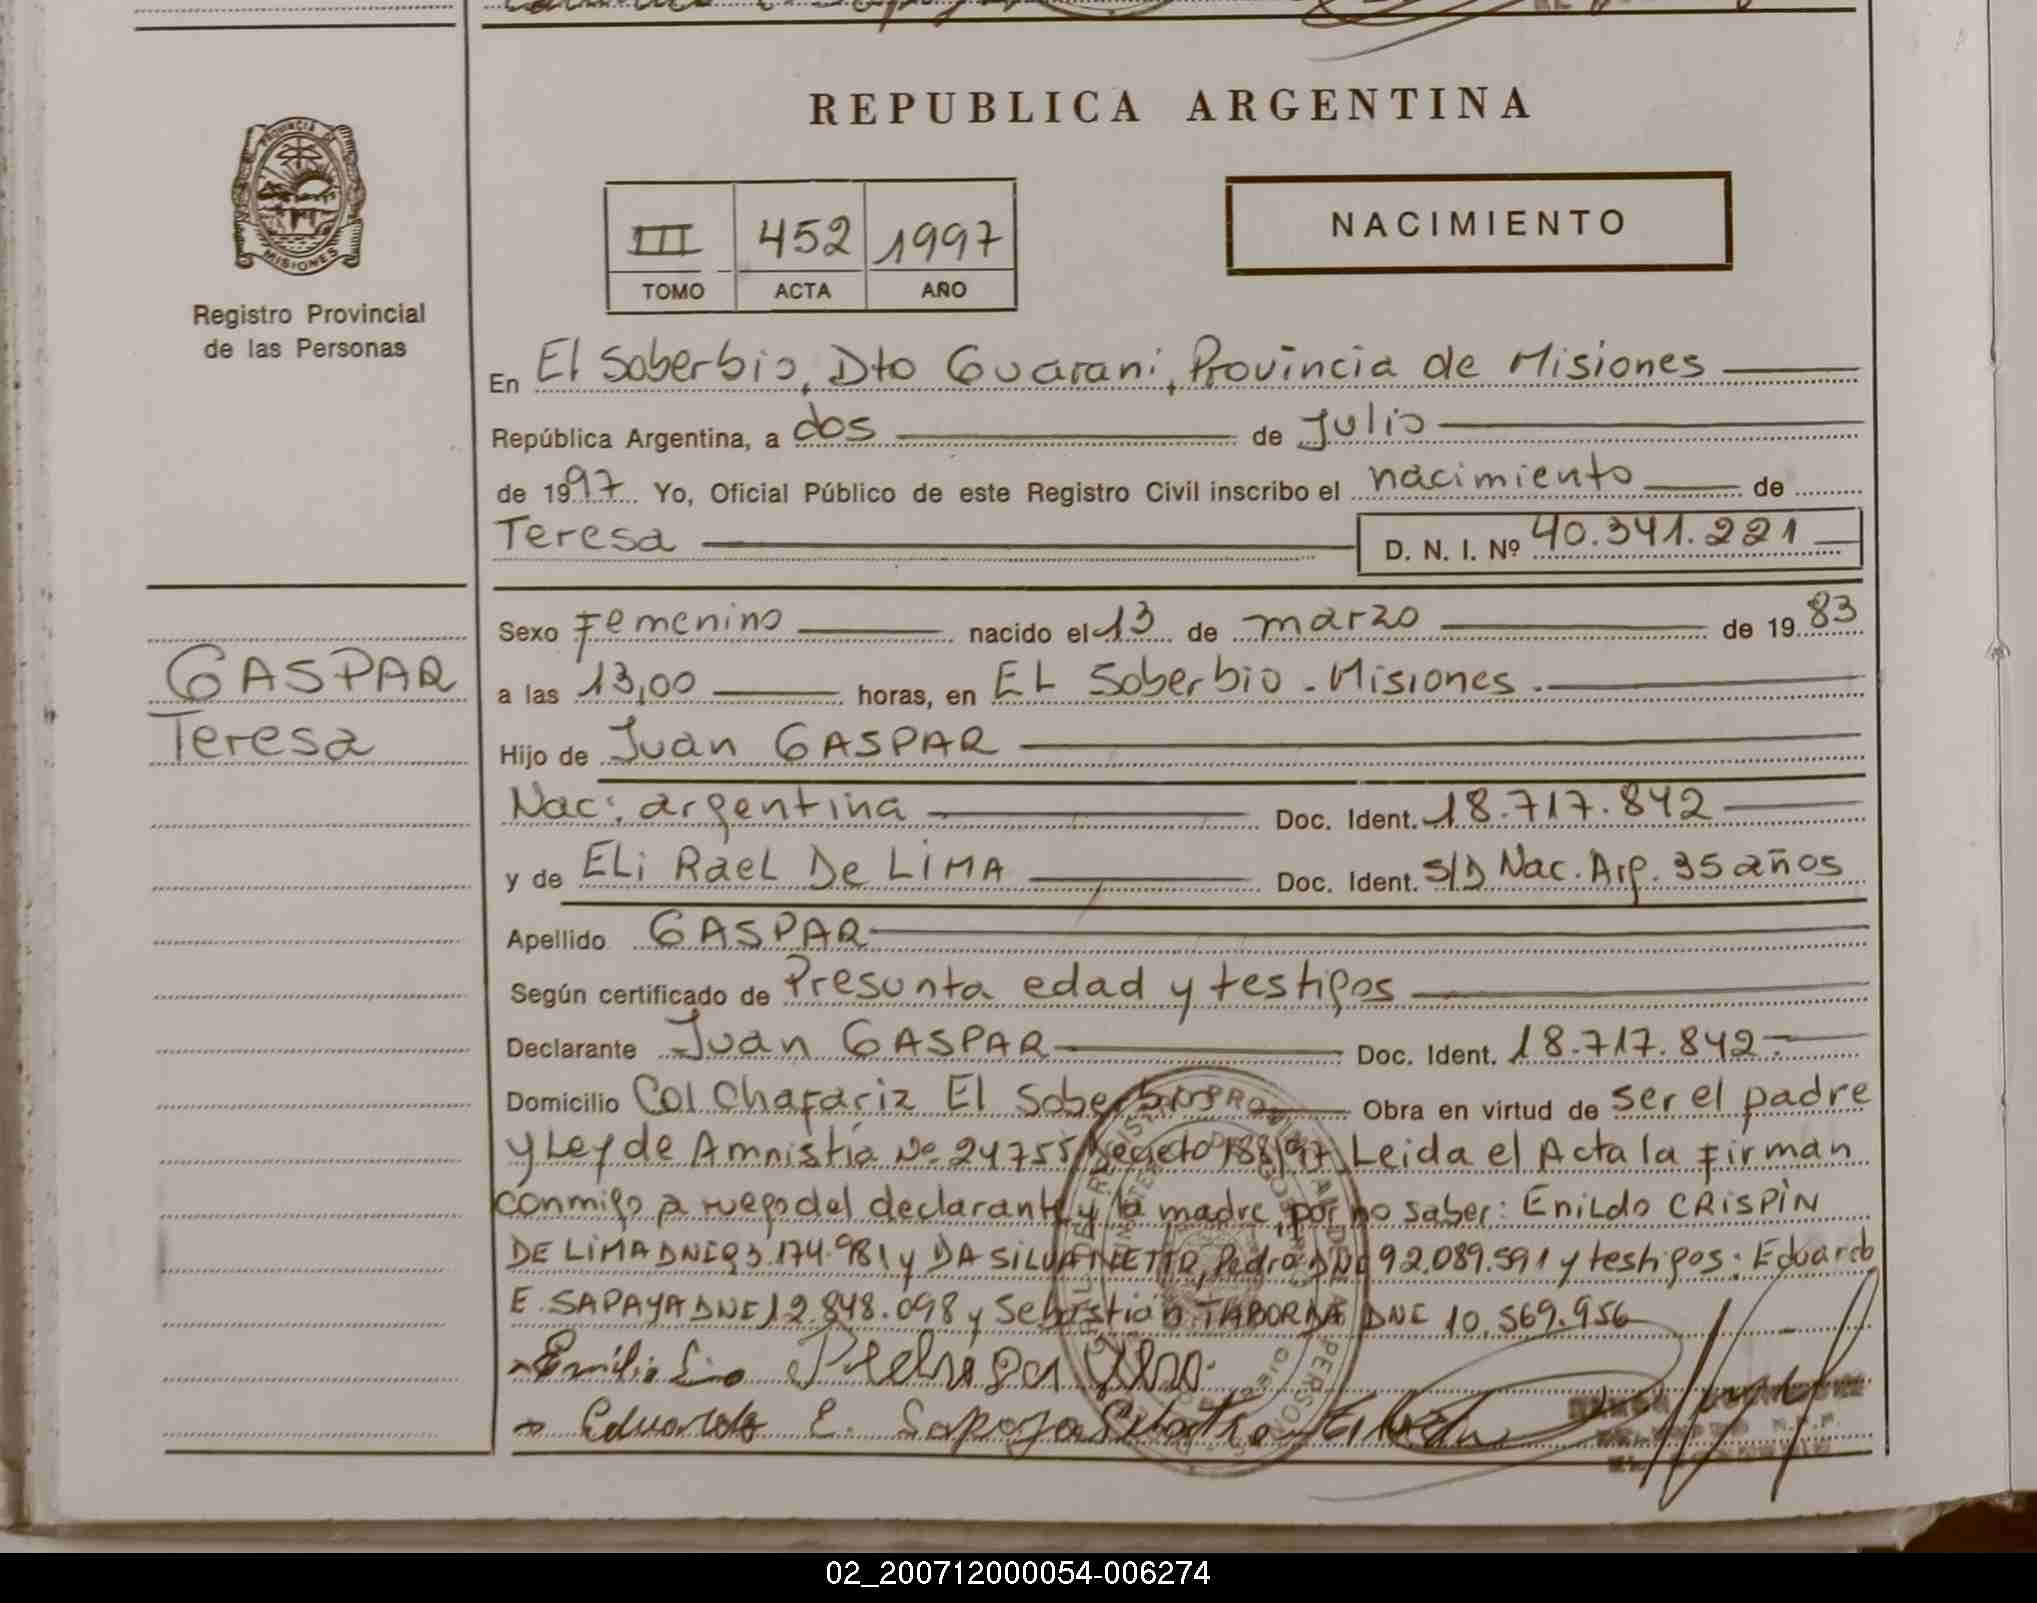 REPUBLICA ARGENTINA
PROVINCIA DE
MISIONES
Registro Provincial
de las Personas
III 452 1997
TOMO ACTA AÑO
NACIMIENTO
En El Soberbio, Dto Guarani, Provincia de Misiones
República Argentina, a dos de Julio
de 1997 Yo, Oficial Público de este Registro Civil inscribo el nacimiento de
Teresa D. N. I. Nº 40.341.221
GASPAR
Teresa
Sexo Femenino nacido el 13 de marzo de 1983
a las 13,00 horas, en EL Soberbio - Misiones.
Hijo de Juan GASPAR
Nac: argentina Doc. Ident. 18.717.842
y de ELi RaeL De LiMA Doc. Ident. S/D Nac. Arg. 35 años
Apellido GASPAR
Según certificado de Presunta edad y testigos
Declarante Juan GASPAR Doc. Ident. 18.717.842.-
Domicilio Col Chafariz El Soberbio Obra en virtud de ser el padre
y Ley de Amnistía Nº 24755 Decreto 188/97 Leida el Acta la firman
conmigo a ruego del declarante y la madre, por no saber: Enildo CRISPÌN
DE LIMA DNI 93.174.981 y DA SILVA NETTO, Pedro DNI 92.089.591 y testigos: Eduardo
E. SAPAYA DNI 12.848.098 y Sebastián TABORDA DNI 10.569.956
Eduardo E. Sapaya
02_200712000054-006274